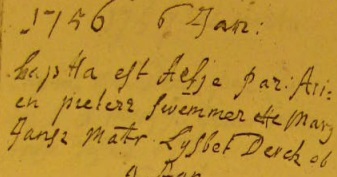 1756 6 Jan:
bap^ta est Aefje par: Ari=
en pieterz swemmer Et Marij
Jansz Matr Lysbet Derck ob
Jan